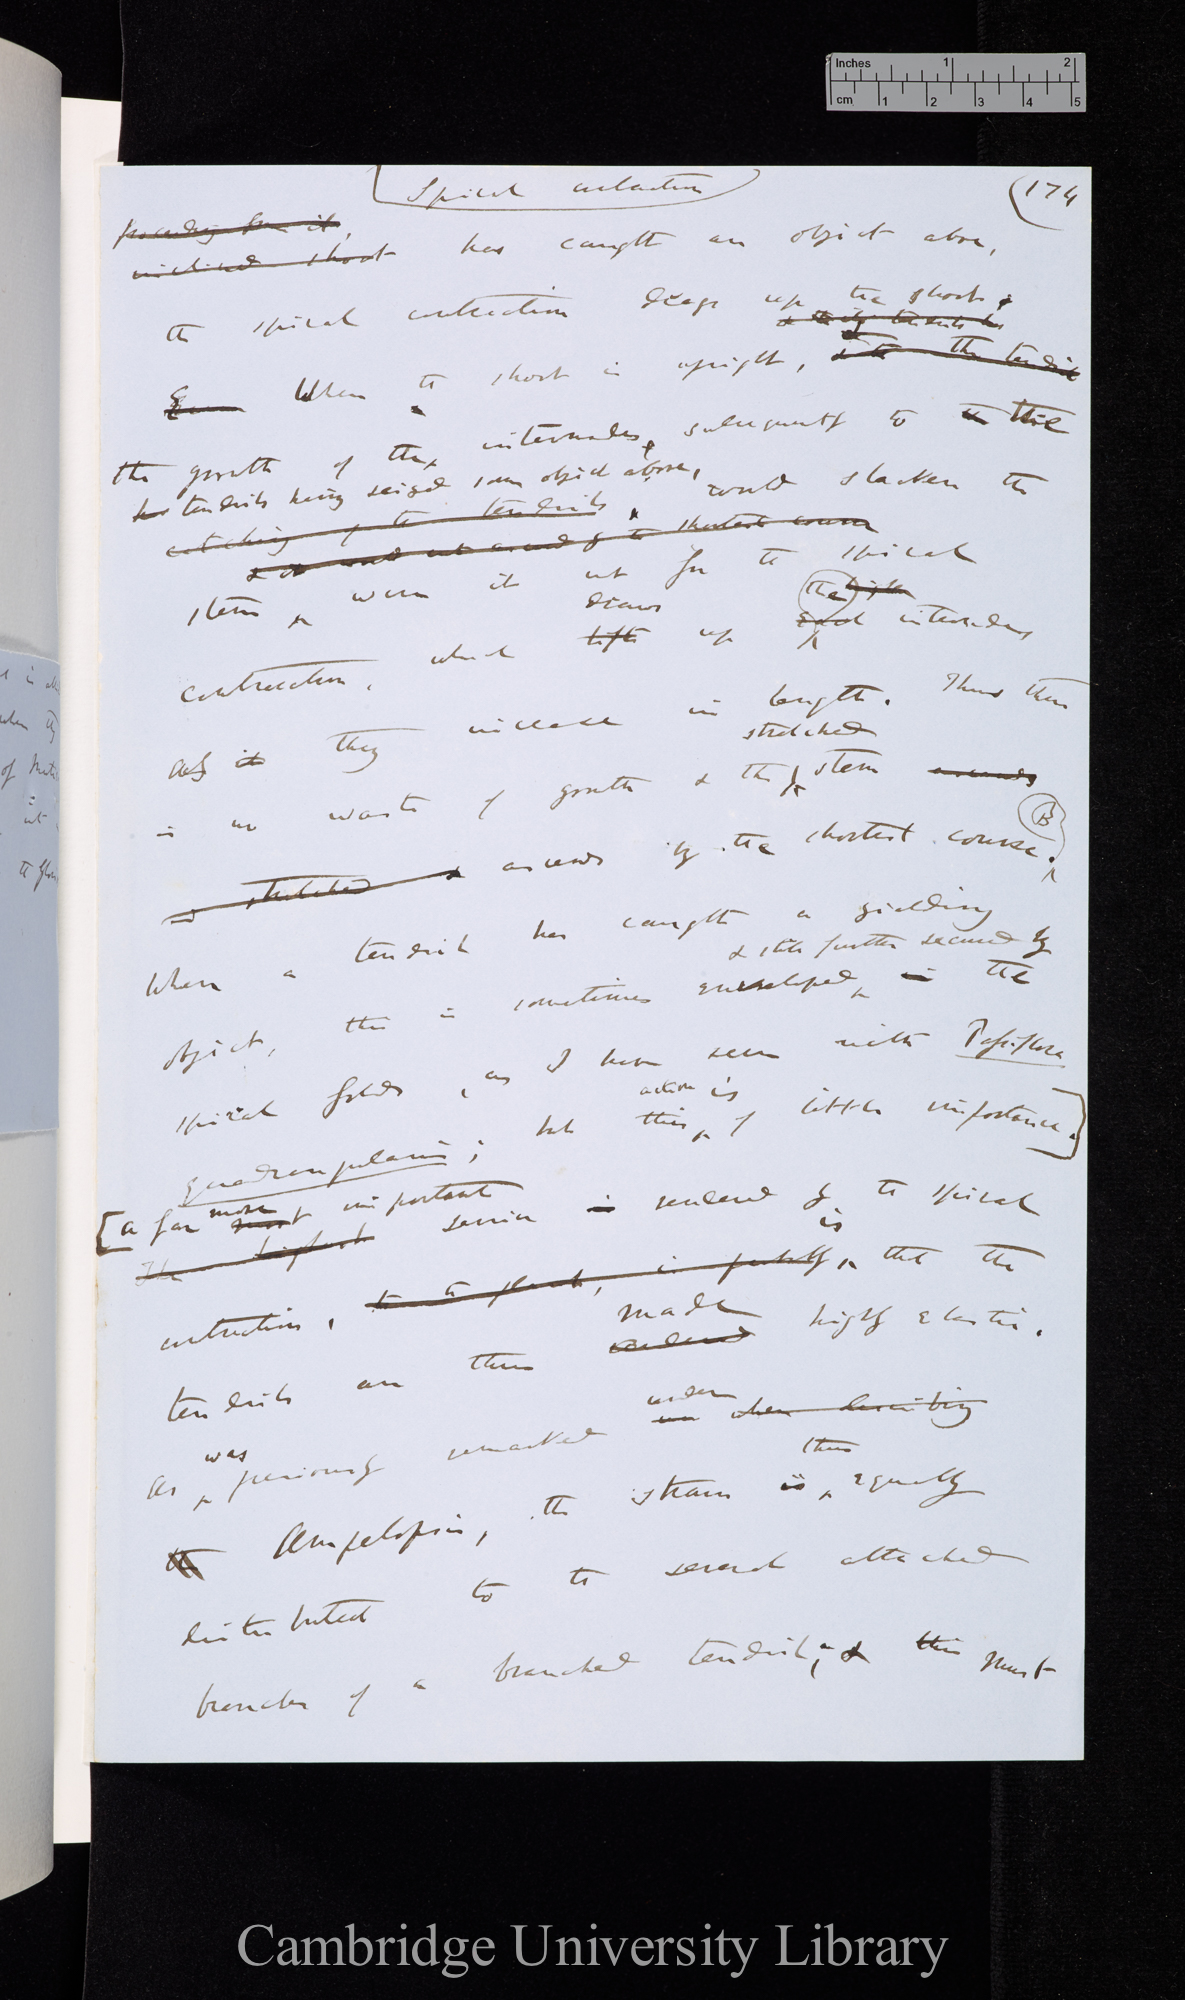 Inches 1 2
cm 1 2 3 4 5
Spiral contraction
(174
proceeding from it,
inclined shoot has caught an object above,
the spiral contraction drags up the shoot;
When the shoot is upright,
the growth of the internodes, subsequently to the
tendrils having seized some object above,
catching of the tendrils, would slacken the
& it would not ascend by the shortest course
stem, were it not for the spiral
draws the
contraction, which lifts up each internodes
as it they increase in length. Thus there
stretched
is no waste of growth & the stem ascends
B
& stretched & ascends by the shortest course.
When a tendril has caught a yielding
& still further secured by
object, this is sometimes enveloped in the
spiral folds, as I have seen with Passiflora
action is
quadrangularis; but this of little importance.]
[A far more important
The highest service is rendered by the spiral
is
contraction, to the plant, is probably, that the
made
tendrils are thus rendered highly elastic.
under
when describing
As was previously remarked
thus
the Ampelopsis, the strain is equally
distributed to the several attached
branches of a branched tendril; & this must
Cambridge University Library